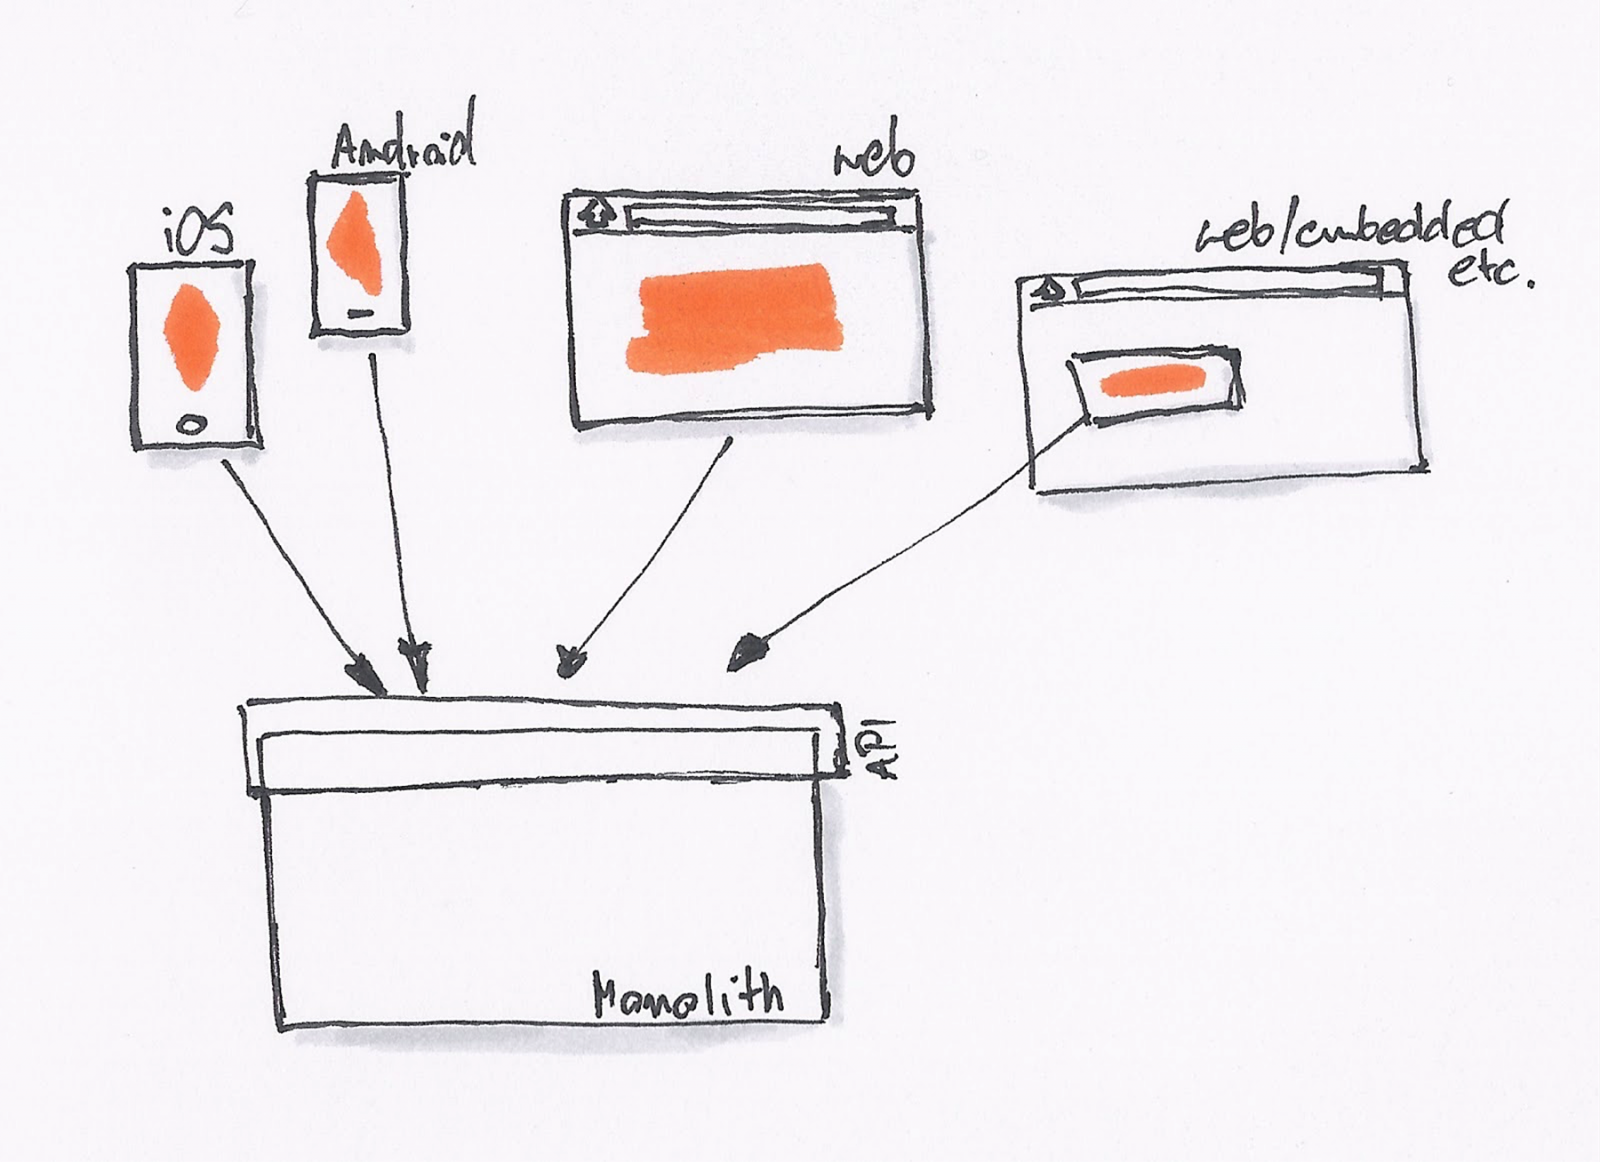 Android
web
iOS
web/embedded
etc.
API
Monolith